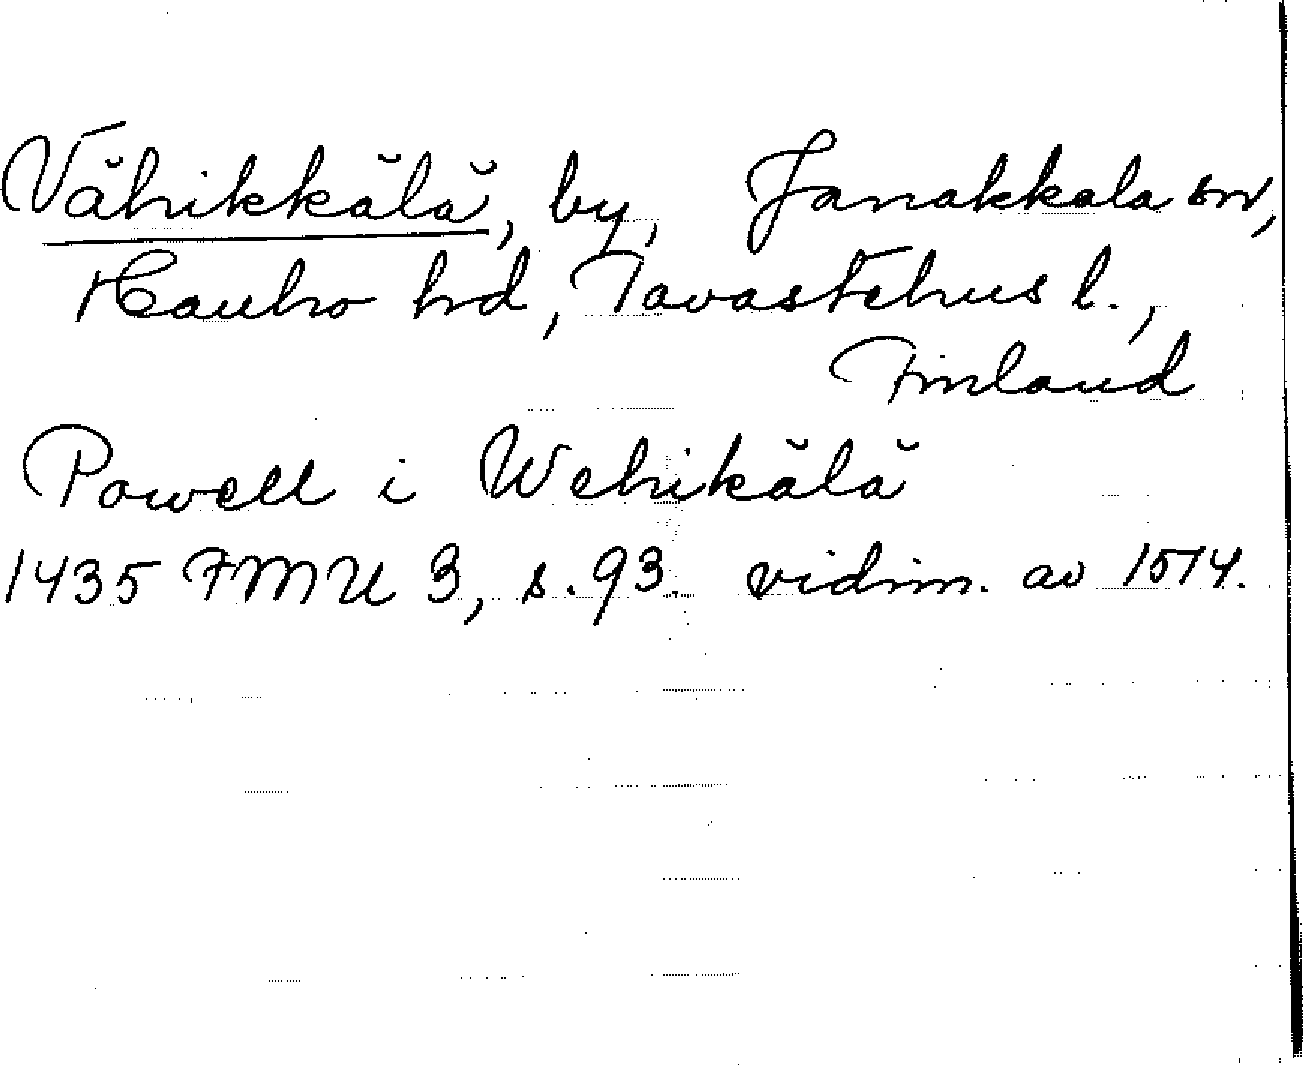 Vähikkälä, by, Janakkala sn,
Hauho hd, Tavastehus l.,
Finland
Powell i Wehikälä
1435 FMU 3, s. 93. vidim. av 1514.